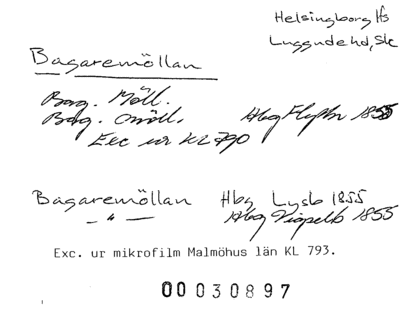 Helsingborg lfs
Luggude hd, Sk
Bagaremöllan
Bag. Möll.
Bag. Hbg 1855
Exc ur KL 790
Bagaremöllan Hbg Lysb 1855
— " — Hbg 1855
Exc. ur mikrofilm Malmöhus län KL 793.
00030897